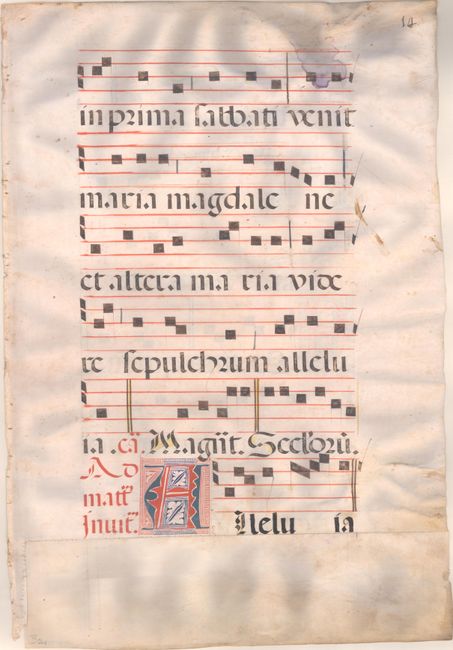 14
in prima sabbati venit
maria magdale ne
et altera ma ria vide
re sepulchrum allelu
ia . ca. Magñt. Seclorũ.
Ad
mat̃
Inuit̃.
Allelu ia